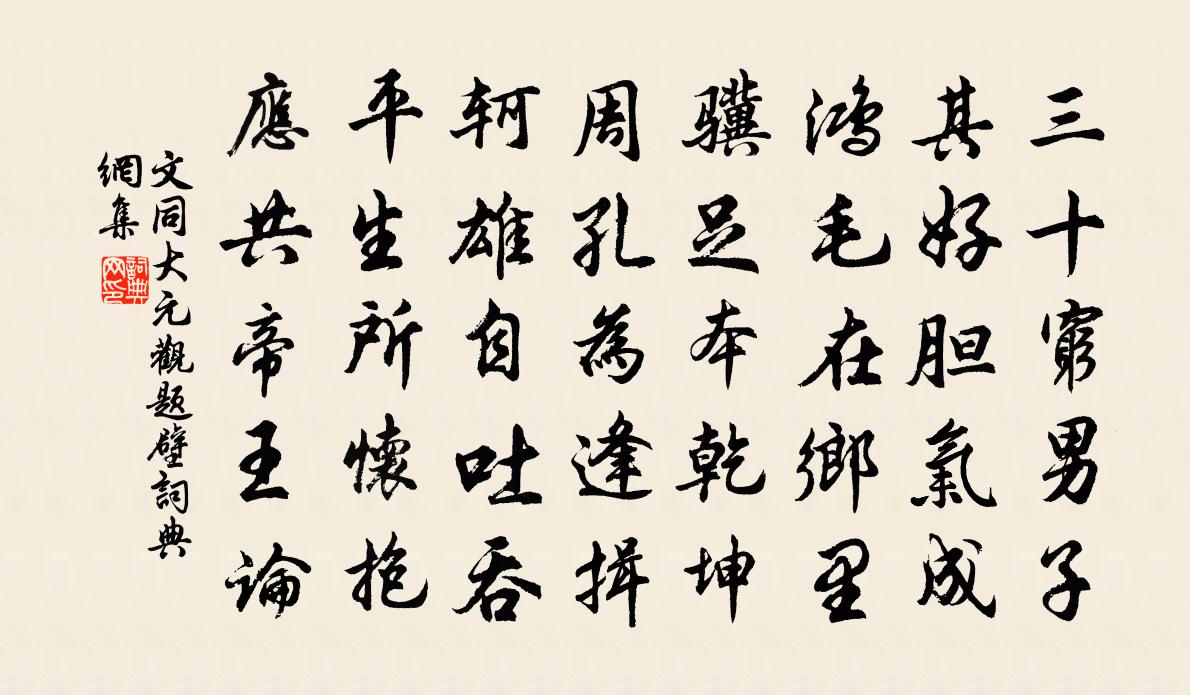 三十窮男子
其好胆氣成
鸿毛在鄉里
骥足本乾坤
周孔為逢揖
轲雄自吐吞
平生所懷抱
應共帝王論
文同大元觀题壁詞典
網集
詞典
网印